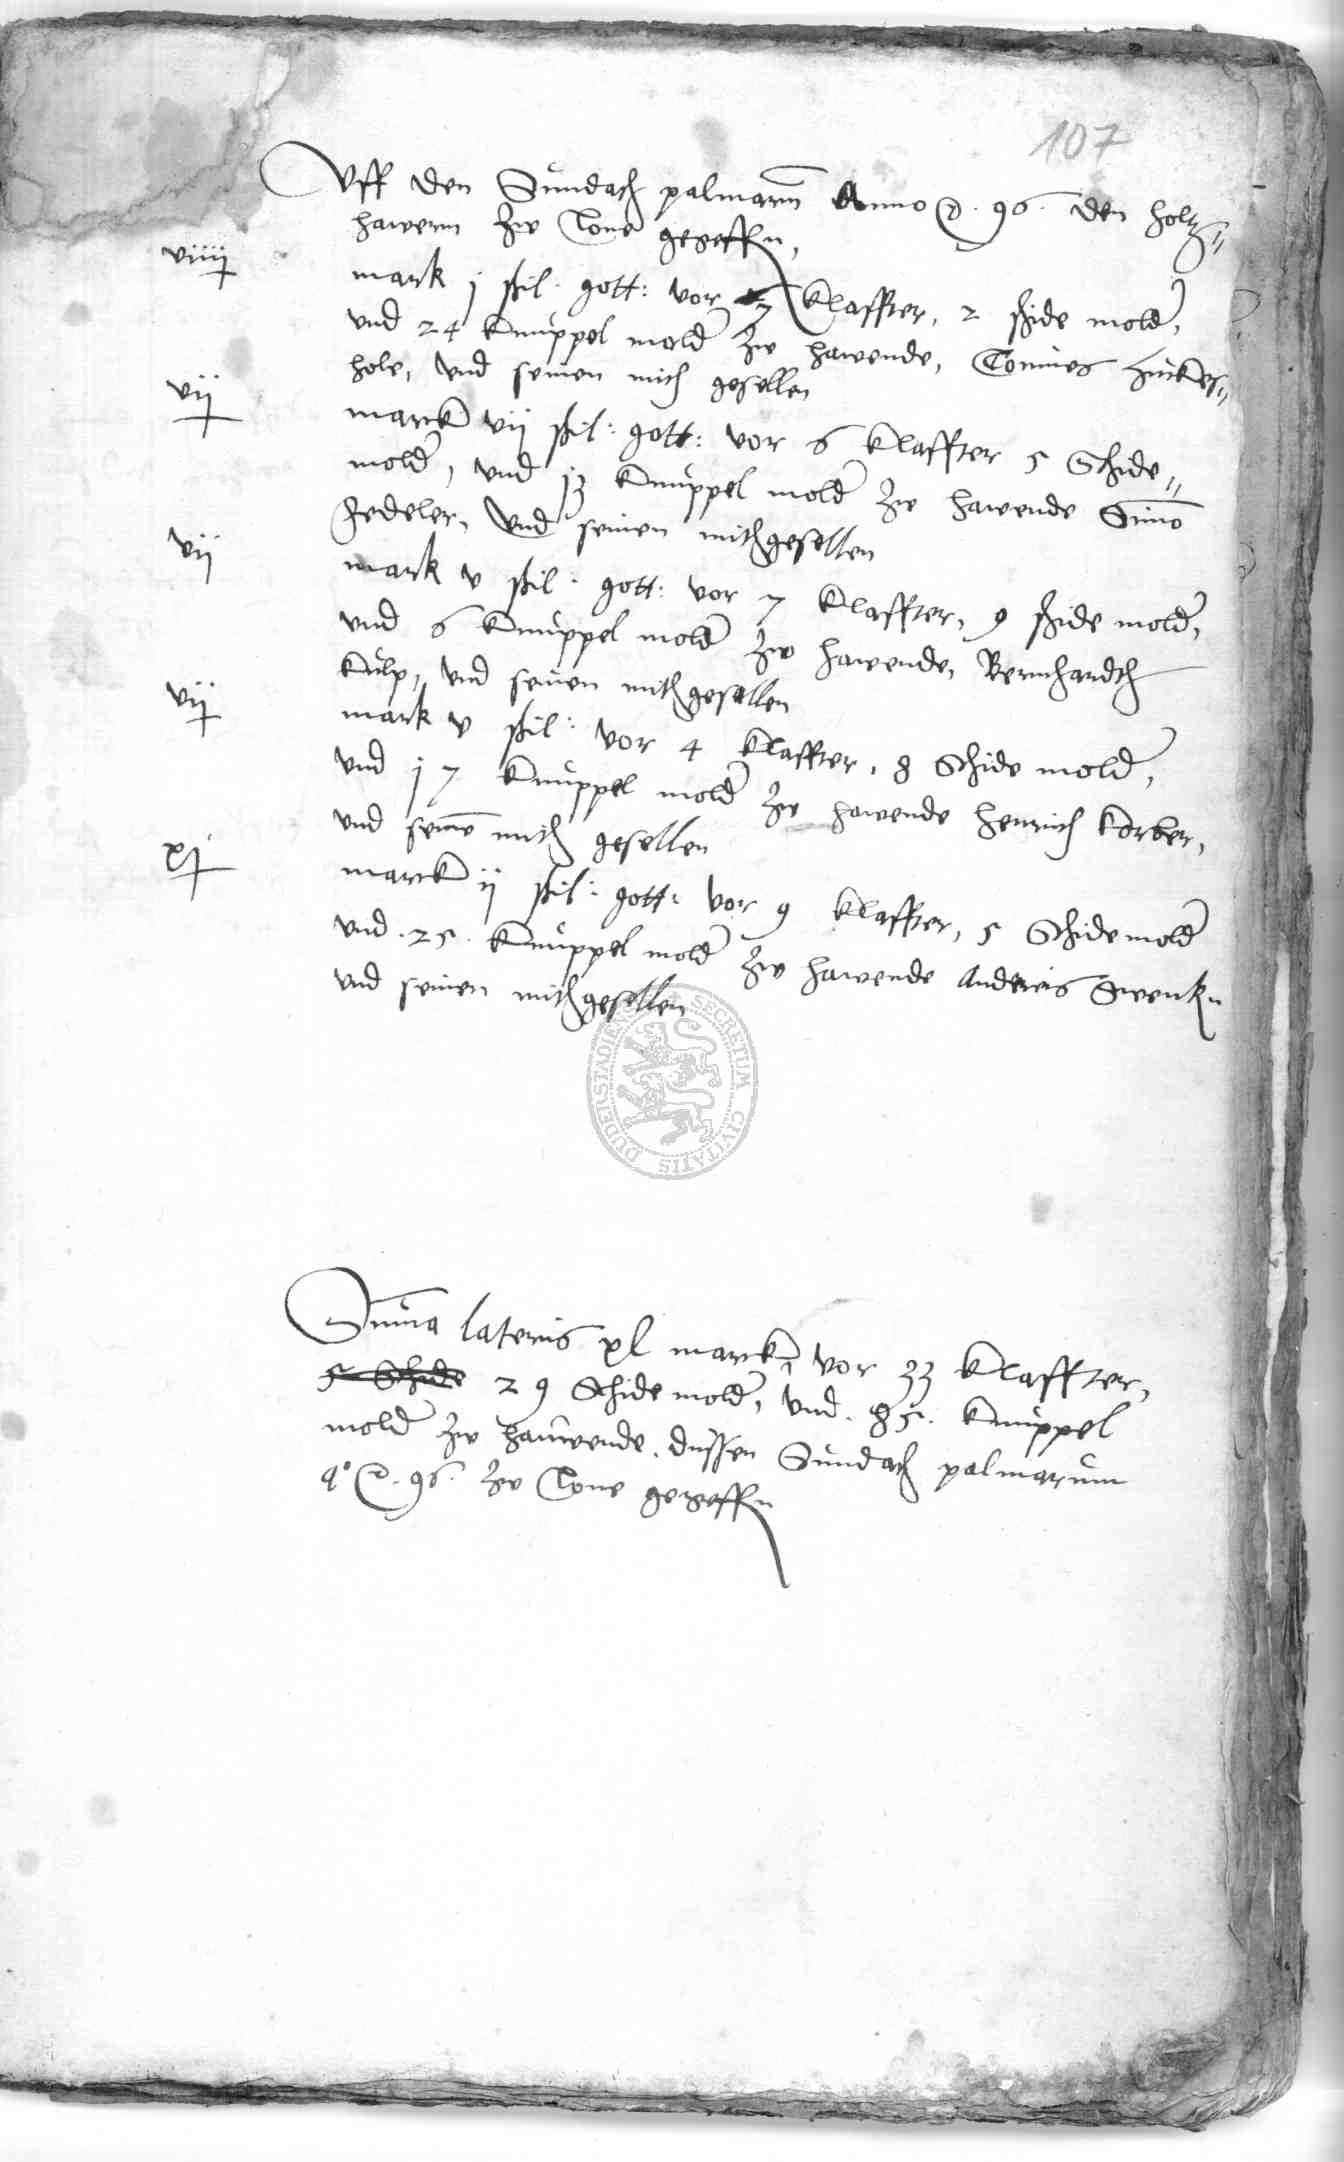 107
Vff den Sundach palmarum Anno d. 96. den holtz=
hawern zw Lone gegeffn,
viiij mark j ßil: gott: vor 7 klaffter, 2 scide mold,
vnd 24 knuppel mold zw hawende, Tonnies
hole, vnd seinen mith gesellen
vij marck vij ßil: gott: vor 6 klaffter 5 Schide=
mold, vnd 13 knuppel mold zw hawende Simo
Fedeler, vnd seinen mithgesellen
vij mark v ßil: gott: vor 7 klaffter, 9 scide mold,
vnd 6 knuppel mold zw hawende, Bernhardth
kulp, vnd seinen mithgesellen
vij mark v ßil: vor 4 klaffter, 8 Schide mold,
vnd 17 knuppel mold zw hawende Henrich korber,
vnd seine mith gesellen
xj marck ij ßil: gott: vor 9 klaffter, 5 Schidemold
vnd. 25. knuppel mold zw hawende Andreis Swenkn
vnd seinen mithgesellen
SECRETUM CIVITATIS DUDERSTADIENSIS
Summa lateris xl marck, vor 33 klaffter,
5 Schide 29 Schide mold, vnd. 85. knuppel
mold zw hauwende. dussen Sundach palmarum
a° d. 96. zw Lone gegeffn